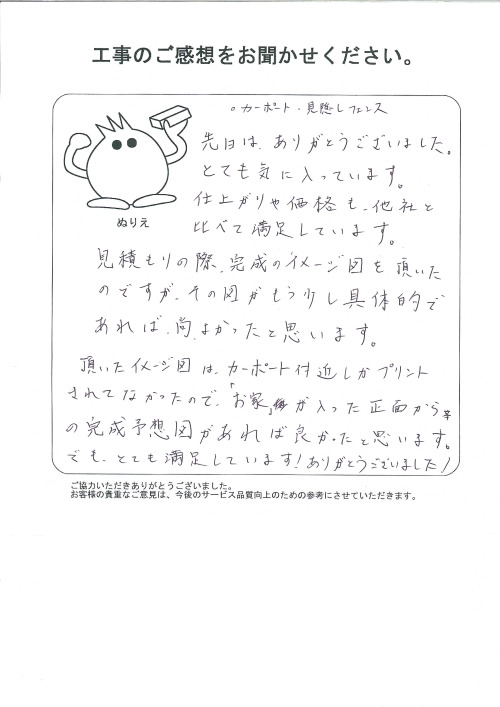 工事のご感想をお聞かせください。
○カーポート・見隠しフェンス
先日は、ありがとうございました。
とても気に入っています。
仕上がりや価格も、他社と
比べて満足しています。
ぬりえ
見積もりの際、完成のイメージ図を頂いた
のですが、その図がもう少し具体的で
あれば、尚よかったと思います。
頂いたイメージ図は、カーポート付近しかプリント
されてなかったので、「お家」が入った正面から
の完成予想図があれば良かったと思います。
でも、とても満足しています!ありがとうございました!
ご協力いただきありがとうございました。
お客様の貴重なご意見は、今後のサービス品質向上のための参考にさせていただきます。